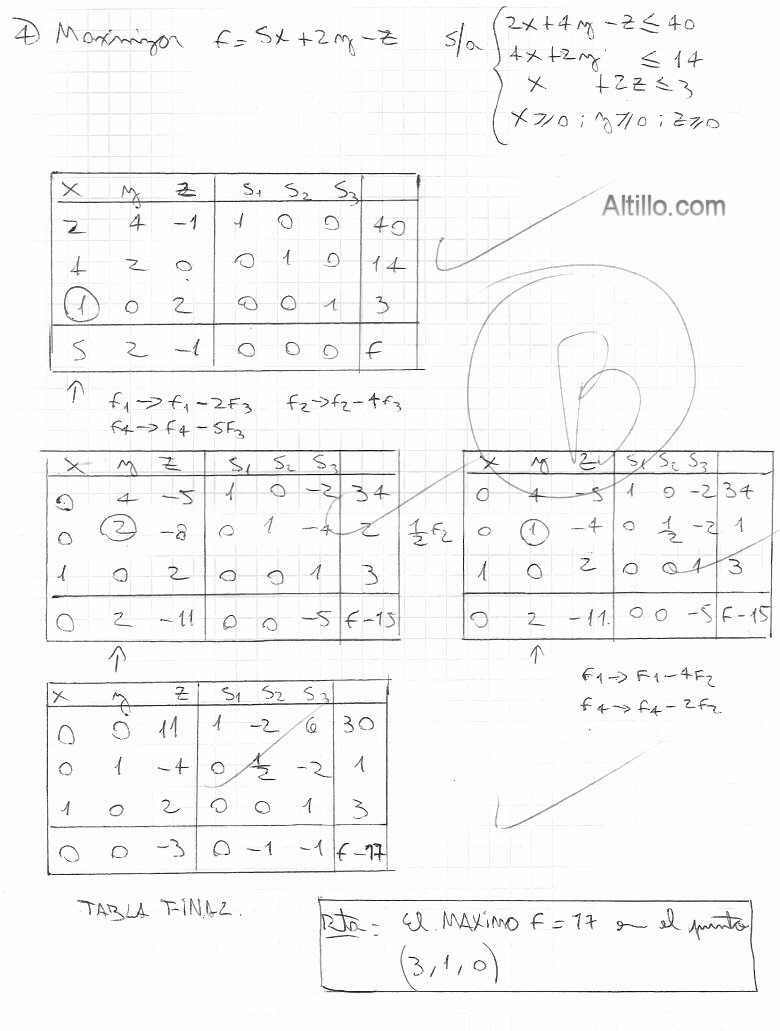 4) Maximizar f = 5x + 2y - z s/a { 2x + 4y - z ≤ 40
4x + 2y ≤ 14
x + 2z ≤ 3
x ≥ 0 ; y ≥ 0 ; z ≥ 0
Altillo.com
x y z S1 S2 S3
2 4 -1 1 0 0 40
4 2 0 0 1 0 14
1 0 2 0 0 1 3
5 2 -1 0 0 0 f
↑ f1 → f1 - 2f3 f2 → f2 - 4f3
f4 → f4 - 5f3
B
x y z S1 S2 S3
0 4 -5 1 0 -2 34
0 2 -8 0 1 -4 2
1 0 2 0 0 1 3
0 2 -11 0 0 -5 f-15
↑
1/2 f2
x y z S1 S2 S3
0 4 -5 1 0 -2 34
0 1 -4 0 1/2 -2 1
1 0 2 0 0 1 3
0 2 -11 0 0 -5 f-15
↑
f1 → F1 - 4F2
f4 → f4 - 2f2
x y z S1 S2 S3
0 0 11 1 -2 6 30
0 1 -4 0 1/2 -2 1
1 0 2 0 0 1 3
0 0 -3 0 -1 -1 f-17
TABLA FINAL.
Rta = El MAXIMO f = 17 en el punto
(3, 1, 0)